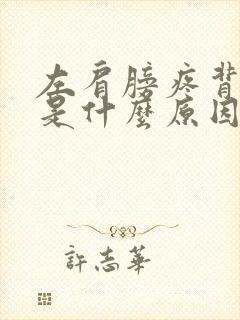 左肩膀疼背
是什麼原因
許志華